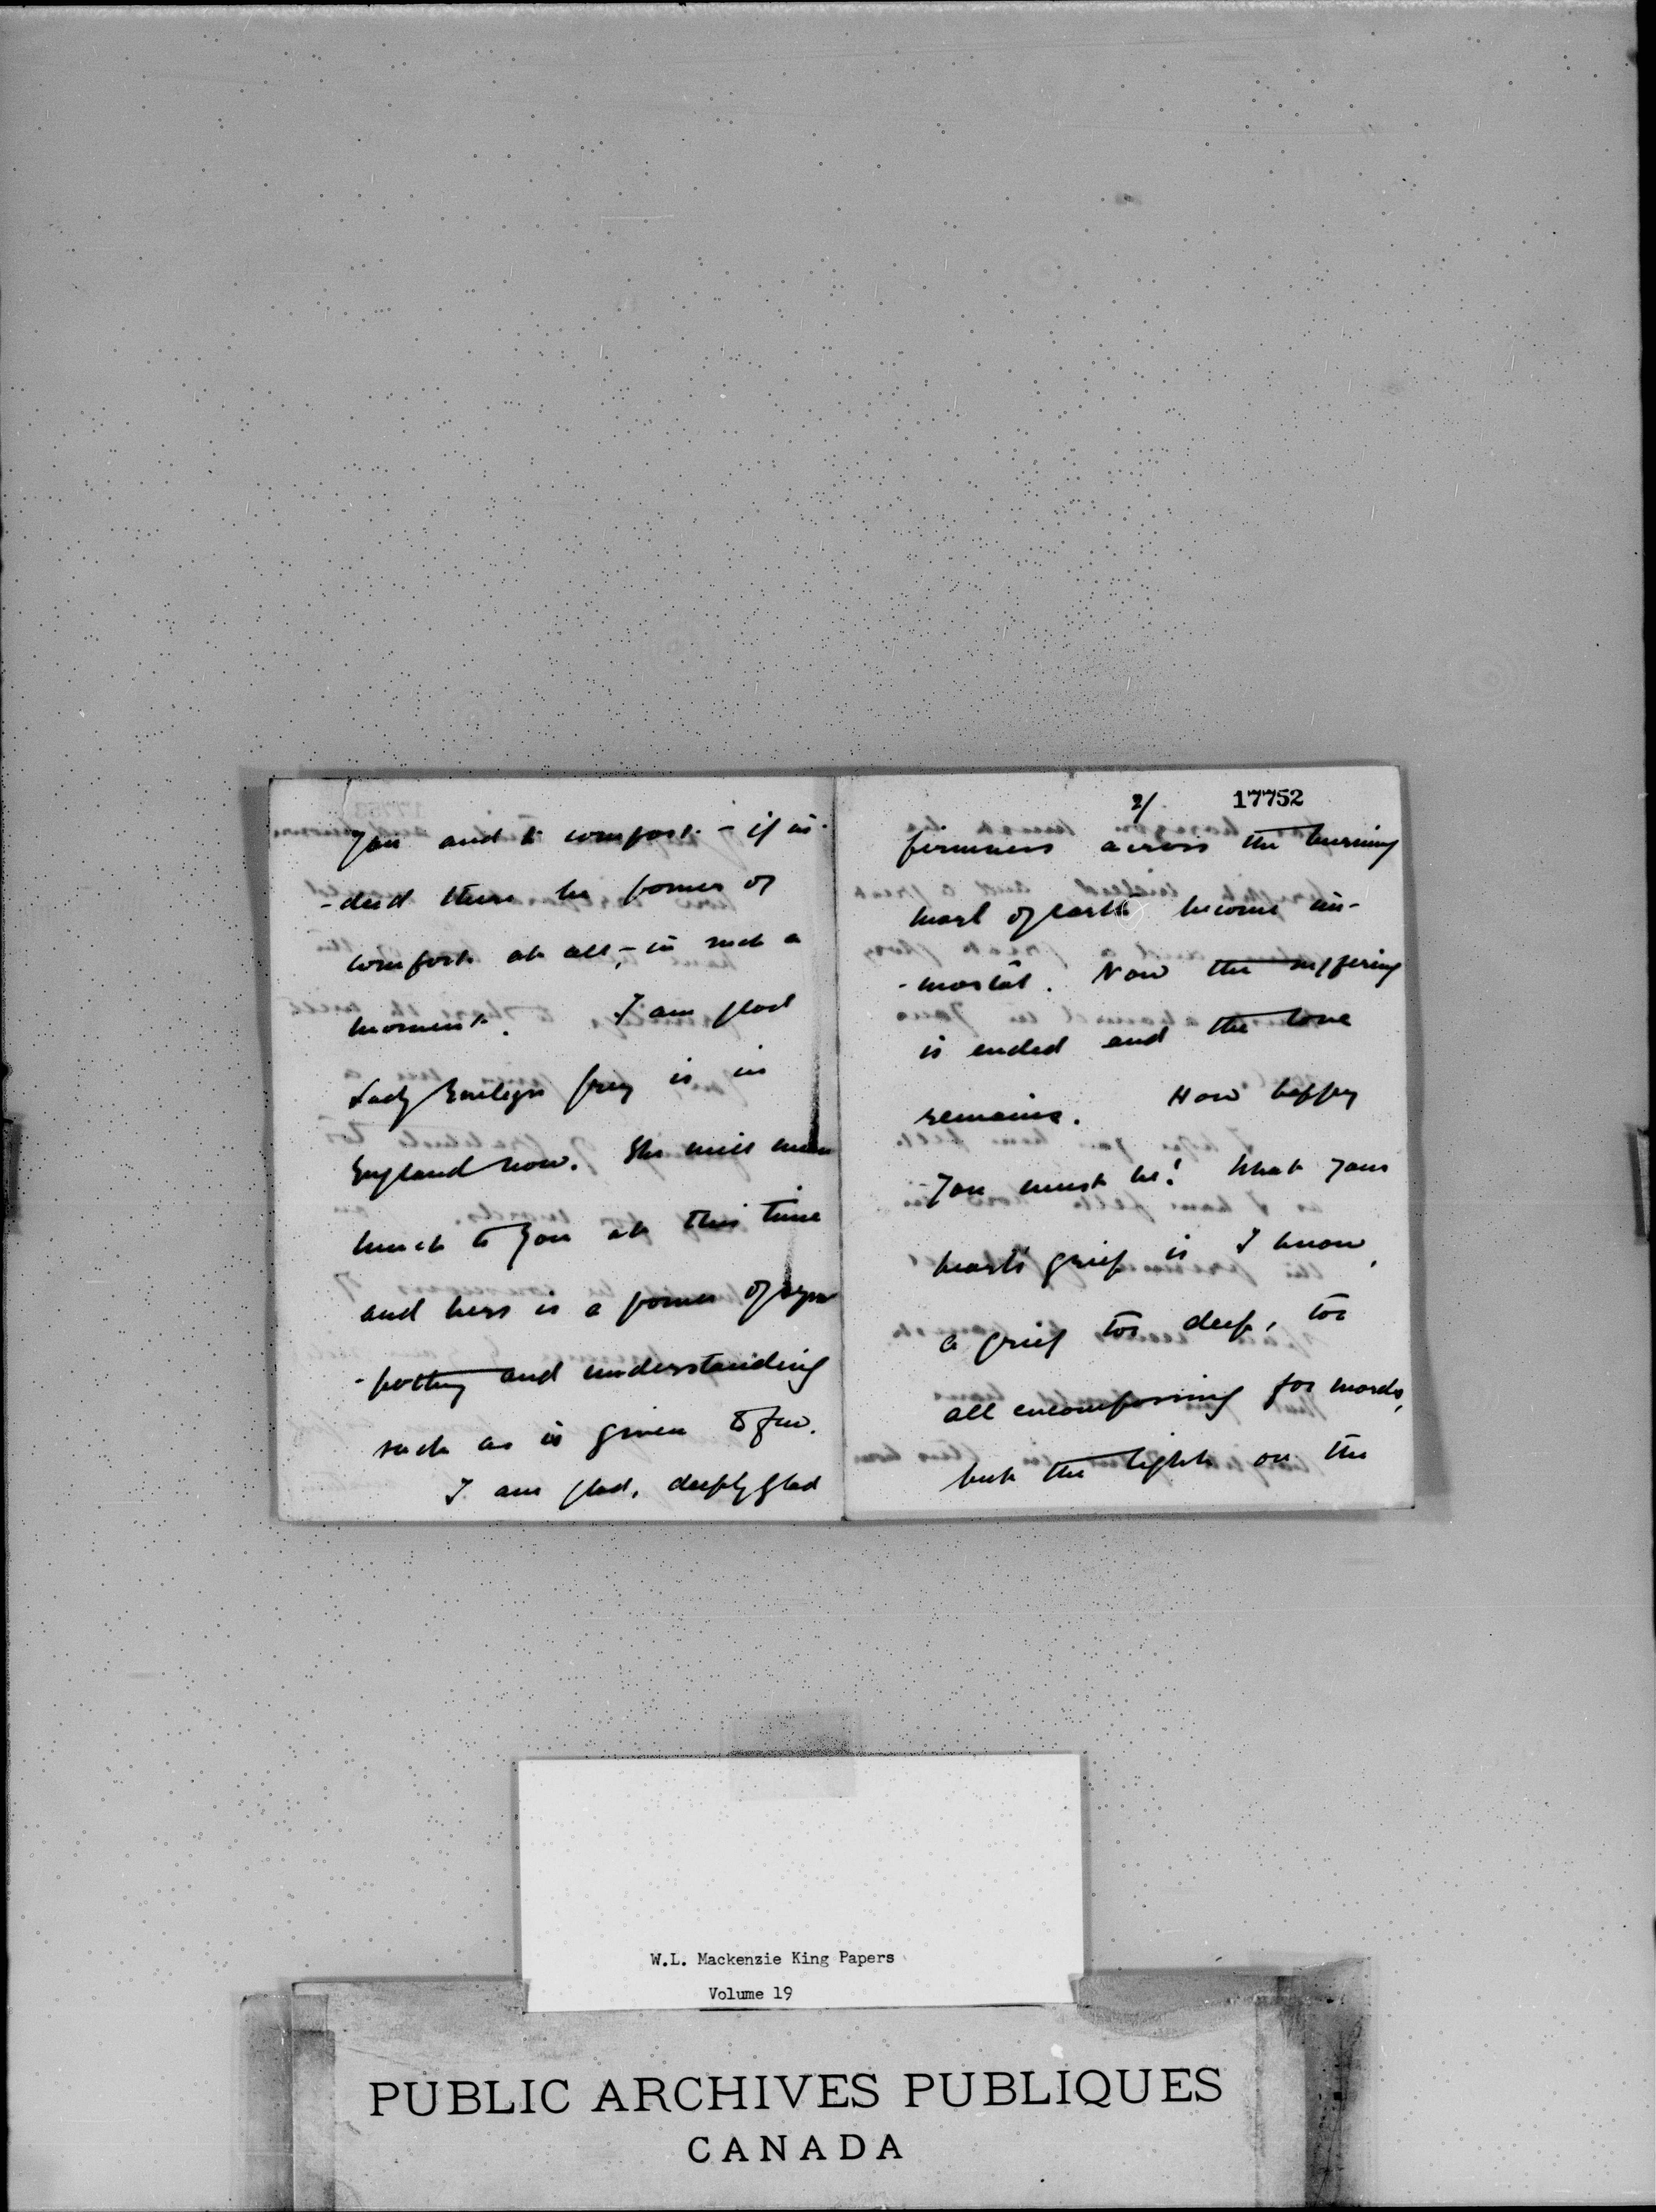 you and to comfort – if in-
-deed there be power of
comfort at all, – in such a
moment. I am glad
Lady Evelyn Grey is in
England now. She will mean
much to you at this time
and hers is a power of sym
-pathy and understanding
such as is given to few.
I am glad, deeply glad
2/ 17752
firmness across the burning
marl of earth become im-
-mortal. Now the suffering
is ended and the love
remains. How happy
you must be! What your
heart's grief is I know,
a grief too deep, too
all encompassing for words,
but the light on the
W.L. Mackenzie King Papers
Volume 19
PUBLIC ARCHIVES PUBLIQUES
CANADA